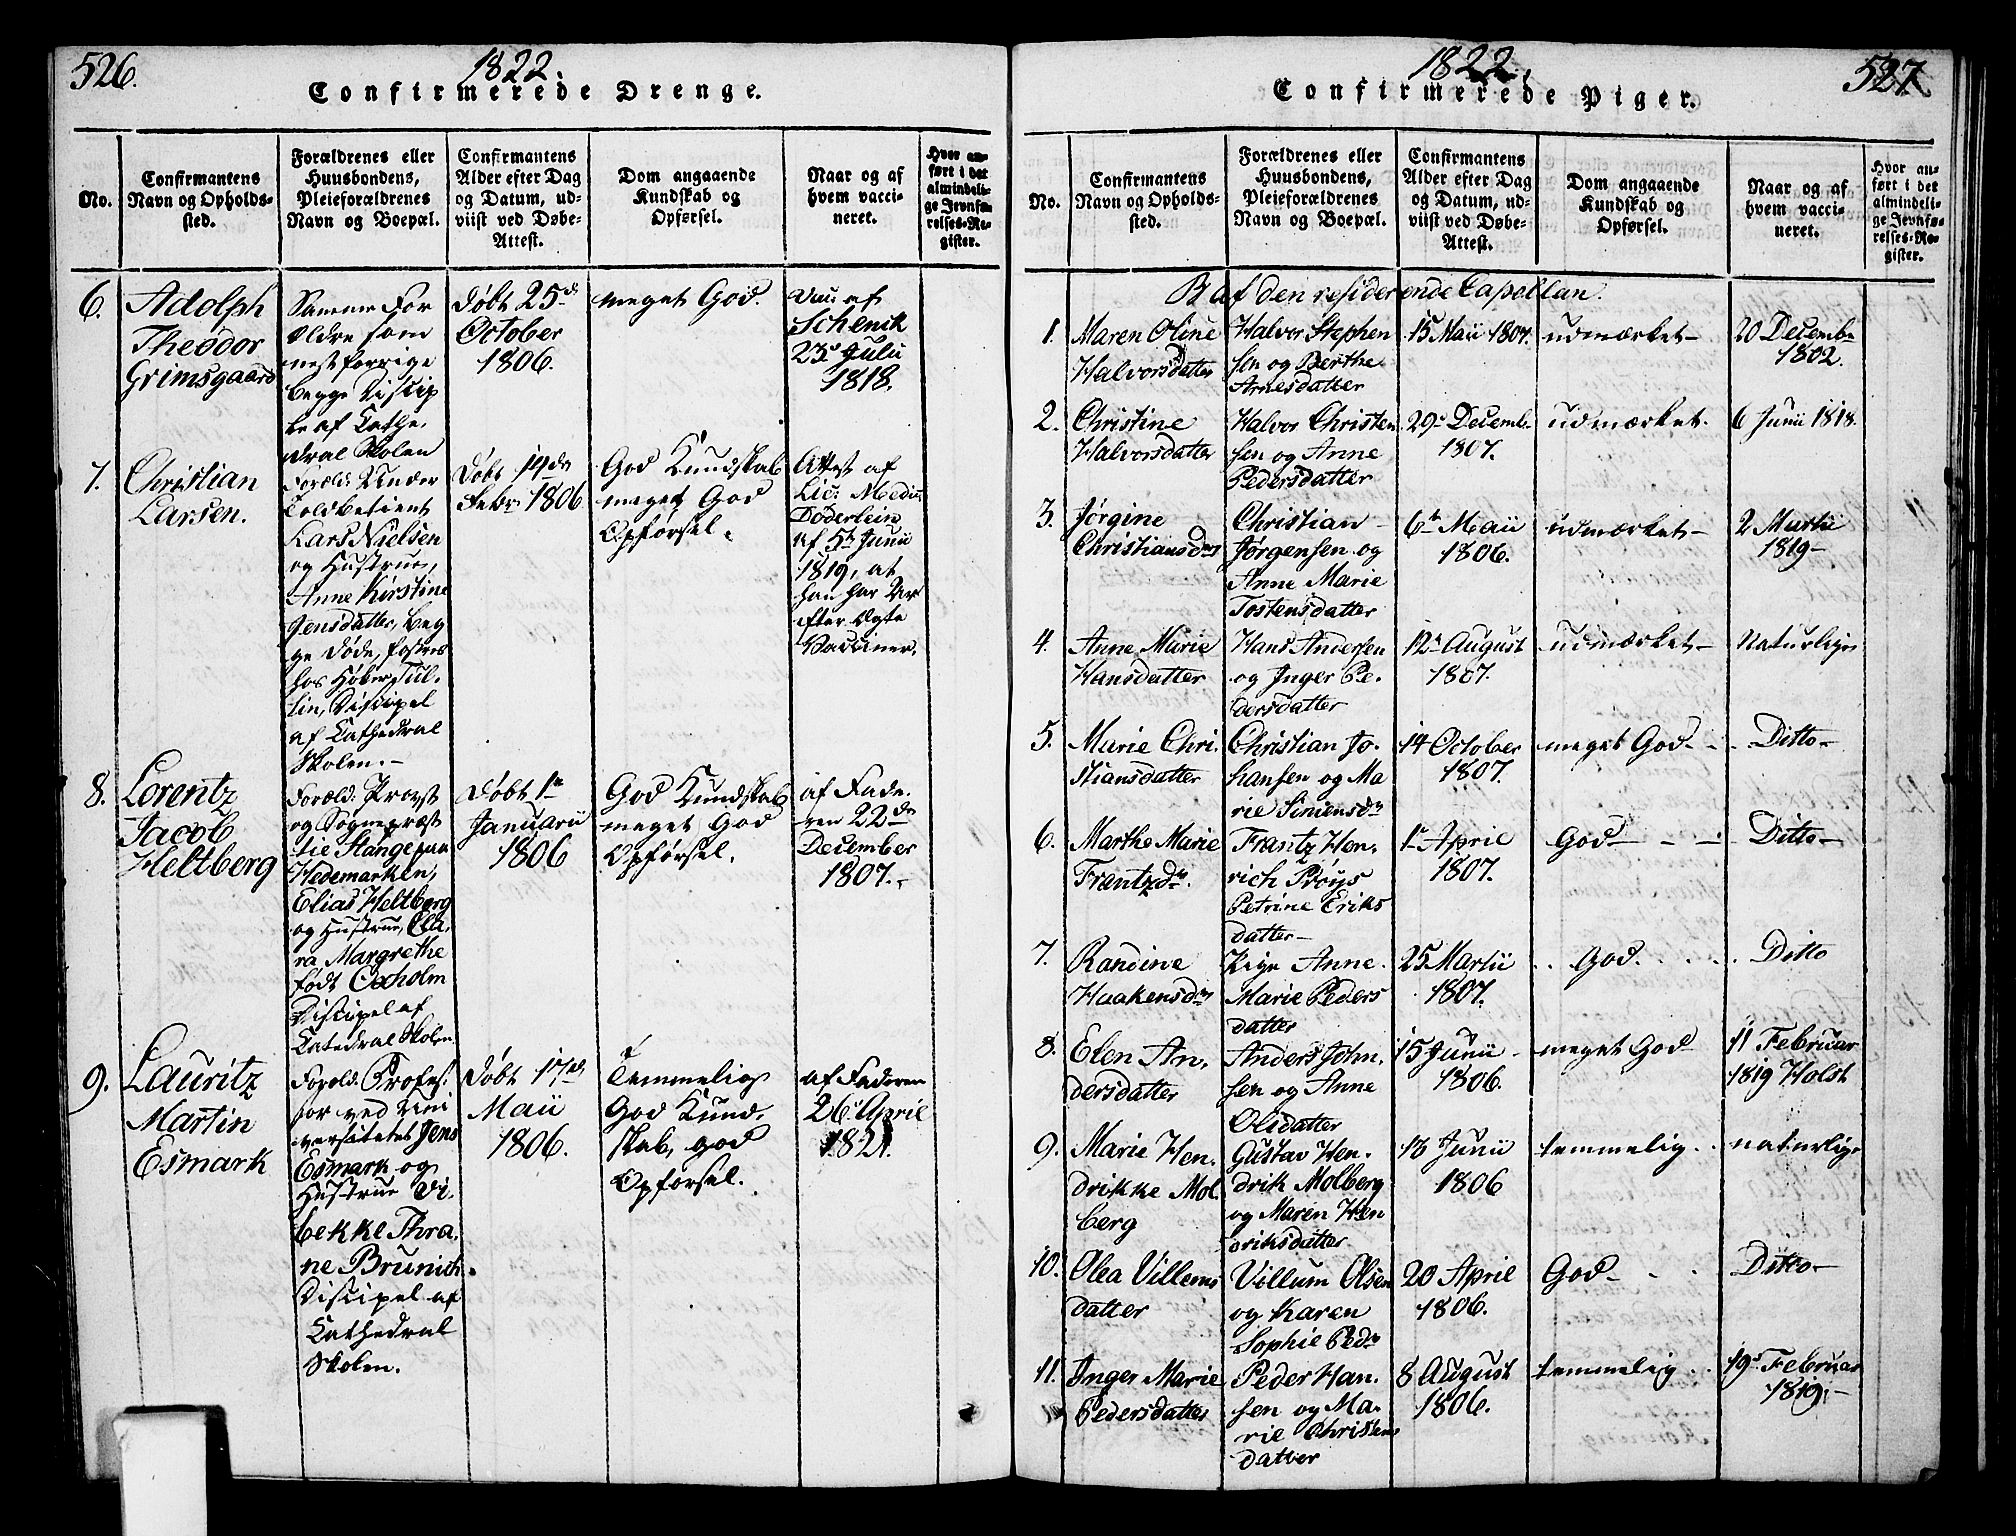 526.
1822.
Confirmerede Drenge.
No.
Confirmantens
Navn og Opholds-
sted.
Forældrenes eller
Huusbondens,
Pleieforældrenes
Navn og Boepæl.
Confirmantens
Alder efter Dag
og Datum, ud-
viist ved Døbe-
Attest.
Dom angaaende
Kundskab og
Opførsel.
Naar og af
hvem vacci-
neret.
Hvor an-
ført i det
almindeli-
ge Jevnfø-
relses-Re-
gister.
6.
Adolph
Theodor
Grimsgaard
Samme For
ældre som
nestforrige
begge Discip
le af Cathe,
dral Skolen
Døbt 25de
October
1806.
meget God.
Vac: af
Schenck
23de Julii
1818.
7.
Christian
Larsen.
Foræld: Under
Toldbetient
Lars Nielsen
og Hustrue,
Anne Kirstine
Jensdatter, beg
ge døde, fostres
hos Høker Tul-
lin, Discipel
af Cathedral
Skolen.-
Døbt 14de
Febr 1806
God Kundskab
meget God
Opførsel.
Attest af
Lic: Medic:
Døderlein
af 5te Junii
1819, at
han har Ar
efter ægte
Vacciner.
8.
Lorentz
Jacob
Heltberg
Foræld: Provst
og Sognepræst
til Stange paa
Hedemarken,
Elias Heltberg
og Hustrue, Cla,
ra Margrethe
født Oxholm
Discipel af
Catedral Skolen
Døbt 1te
Januarii
1806
God Kundskab
meget God
Opførsel.
af Fade-
ren 22de
December
1807.-
9.
Lauritz
Martin
Esmark
Foræld: Profes-
sor ved Uni
versitetet Jens
Esmark og
Hustrue Vi,
bekke Thra,
ne Brunich.
Discipel af
Cathedral
Skolen.
Døbt 17de
Maii
1806.
Temmelig
God Kund,
skab, god
Opførsel.
af Faderen
26de April
1821.
1822.
527
Confirmerede Piger.
No.
Confirmantens
Navn og Opholds-
sted.
Forældrenes eller
Huusbondens,
Pleieforældrenes
Navn og Boepæl.
Confirmantens
Alder efter Dag
og Datum, ud-
viist ved Døbe-
Attest.
Dom angaaende
Kundskab og
Opførsel.
Naar og af
hvem vacci-
neret.
Hvor an-
ført i det
almindeli-
ge Jevnfø-
relses-Re-
gister.
B af den residerende Capellan.
1.
Maren Oline
Halvorsdatter
Halvor Stephen
sen og Berthe
Arnesdatter
15 Maii 1807.
udmærket-
20 Decembr
1802.
2.
Christine
Halvorsdatter
Halvor Christen
sen og Anne
Pedersdatter
29de Decemb:
1807.
udmærket.
6 Junii 1818.
3.
Jørgine
Christiansdtr
Christian
Jørgensen og
Anne Marie
Tostensdatter
6te Maii
1806.
udmærket-
2 Martii
1819-
4.
Anne Marie
Hansdatter
Hans Andersen
og Inger Pe-
dersdatter
12te August
1807.
udmærket-
Naturlige
5.
Marie Chri-
stiansdatter
Christian Jo-
hansen og Ma
rie Simensdtr
14 October
1807.
meget God
Ditto-
6.
Marthe Marie
Frantzdtr.
Frantz Hen,
rich Prøys
Petrine Eriks
datter-
1te April
1807.
God
Ditto-
7.
Randine
Haakensdtr
Pige Anne
Marie Peders
datter
25 Martii
1807.
God
Ditto
8.
Elen An,
dersdatter
Anders John,
sen og Anne
Olsdatter
15 Junii
1806.
meget God
11 Februar
1819 Holst
9.
Marie Hen,
drikke Mol
berg
Gustav Hen,
drik Molberg
og Maren Hen
driksdatter
16 Junii
1806
temmelig
naturlige
10.
Olea Villems
datter
Villum Olsen
og Karen
Sophie Pedtr
20 April
1806.
God
Ditto-
11.
Inger Marie
Pedersdatter
Peder Han,
sen og Ma-
rie Christens
datter
8 August
1806.
temmelig
19de Februar
1819.-